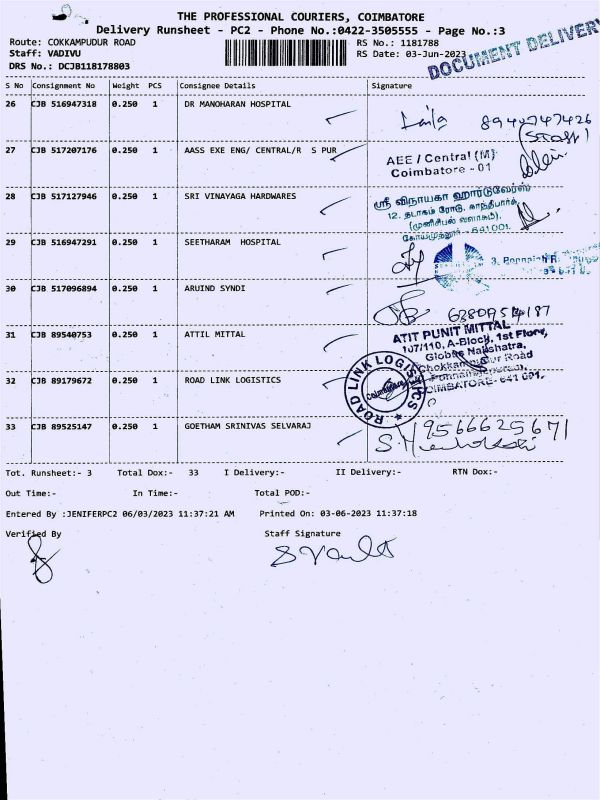 THE PROFESSIONAL COURIERS, COIMBATORE
Delivery Runsheet - PC2 - Phone No.:0422-3505555 - Page No.:3
Route: COKKAMPUDUR ROAD RS No.: 1181788
Staff: VADIVU RS Date: 03-Jun-2023
DRS No.: DCJB118178803
DOCUMENT DELIVERY
S No Consignment No Weight PCS Consignee Details Signature
26 CJB 516947318 0.250 1 DR MANOHARAN HOSPITAL
(Staff)
27 CJB 517207176 0.250 1 AASS EXE ENG/ CENTRAL/R S PUR
AEE / Central (M)
Coimbatore - 01
28 CJB 517127946 0.250 1 SRI VINAYAGA HARDWARES
ஸ்ரீ விநாயகா ஹார்டுவேர்ஸ்
12, தடாகம் ரோடு, காந்திபார்க்,
(முனிசிபல் வளாகம்),
கோயமுத்தூர் - 641001.
29 CJB 516947291 0.250 1 SEETHARAM HOSPITAL
30 CJB 517096894 0.250 1 ARUIND SYNDI
31 CJB 89540753 0.250 1 ATTIL MITTAL
ATIT PUNIT MITTAL
107/110, A-Block, 1st Floor,
Globus Nakshatra,
Chokkampudur Road
COIMBATORE - 641 001.
32 CJB 89179672 0.250 1 ROAD LINK LOGISTICS
ROAD LINK LOGISTICS
Coimbatore
33 CJB 89525147 0.250 1 GOETHAM SRINIVAS SELVARAJ
9566625671
Tot. Runsheet:- 3 Total Dox:- 33 I Delivery:- II Delivery:- RTN Dox:-
Out Time:- In Time:- Total POD:-
Entered By :JENIFERPC2 06/03/2023 11:37:21 AM Printed On: 03-06-2023 11:37:18
Verified By Staff Signature